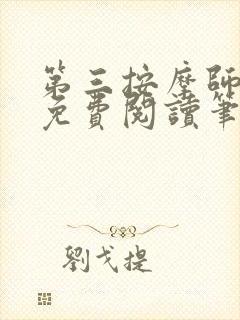 第三按摩師
免費閱讀筆
劉戈提